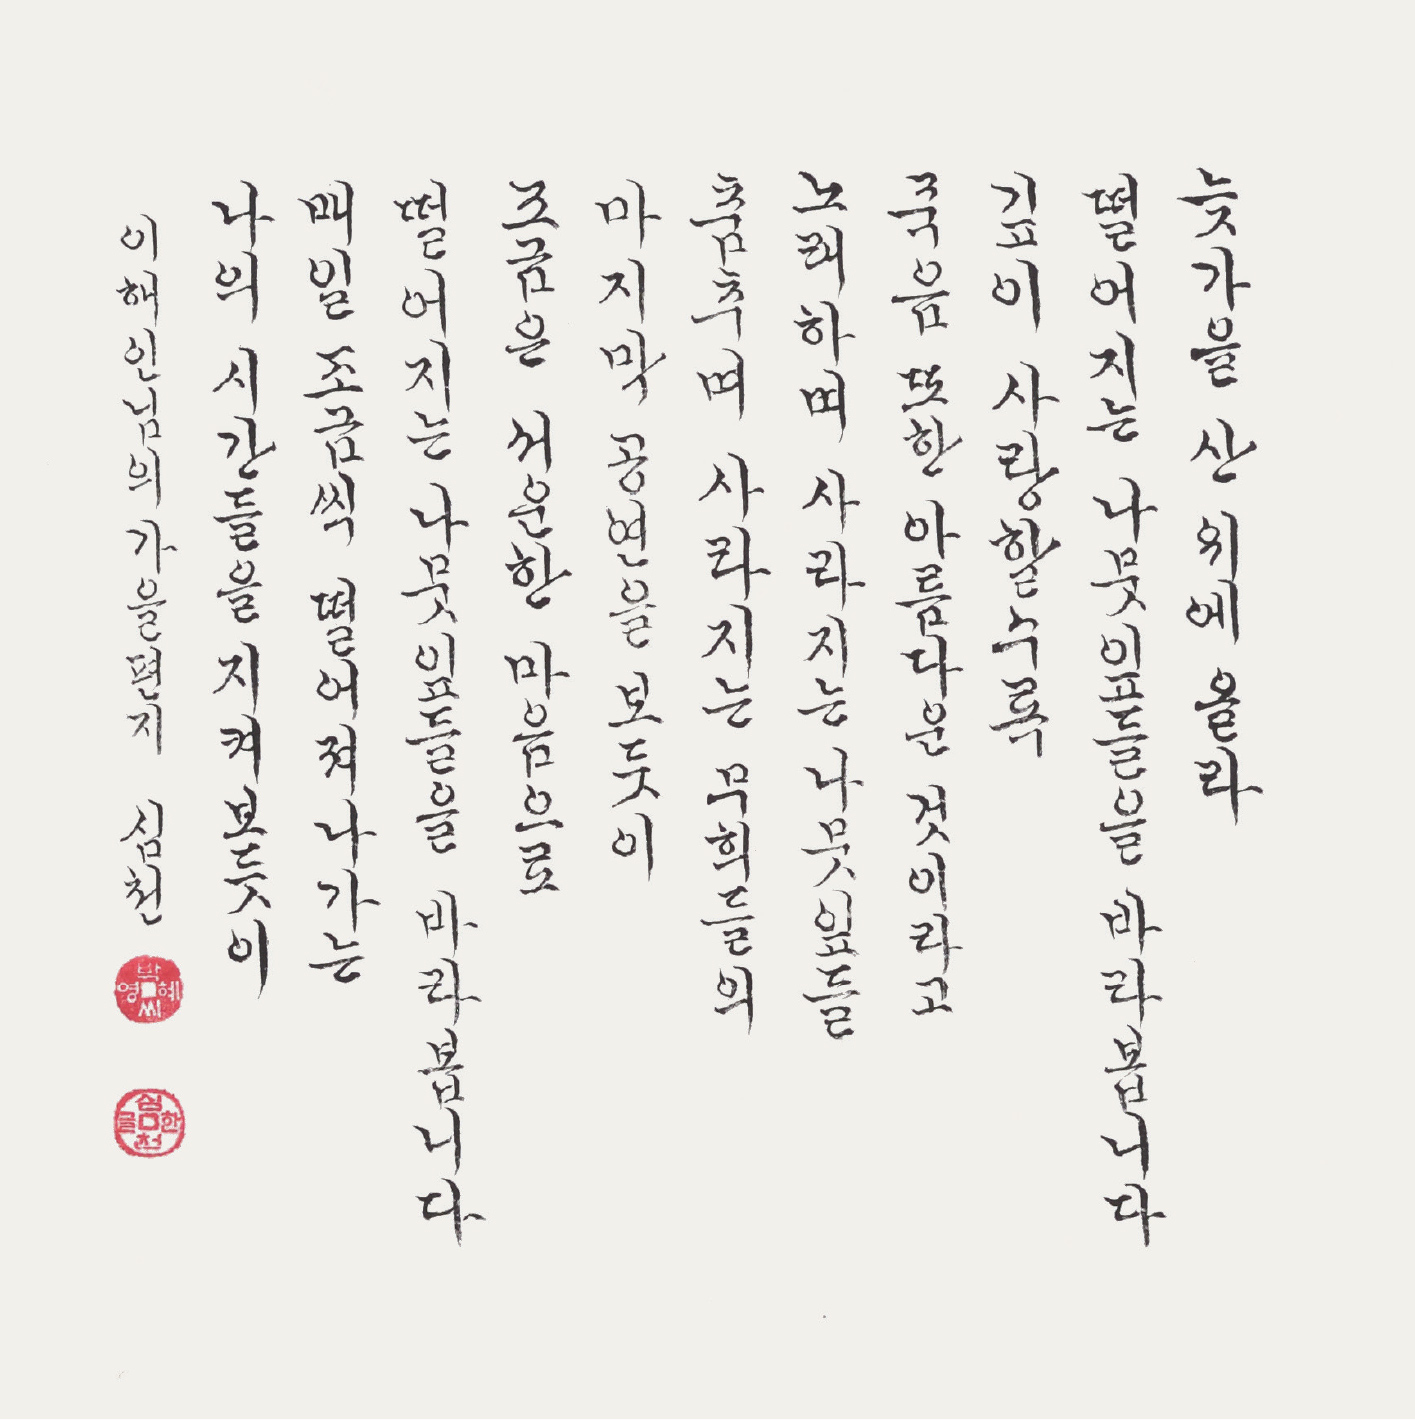 늦가을 산 위에 올라
떨어지는 나뭇잎들을 바라봅니다
깊이 사랑할수록
죽음 또한 아름다운 것이라고
노래하며 사라지는 나뭇잎들
춤추며 사라지는 무희들의
마지막 공연을 보듯이
조금은 서운한 마음으로
떨어지는 나뭇잎들을 바라봅니다
매일 조금씩 떨어져나가는
나의 시간들을 지켜보듯이
이해인님의 가을편지 심천
박혜영씨
심천한글